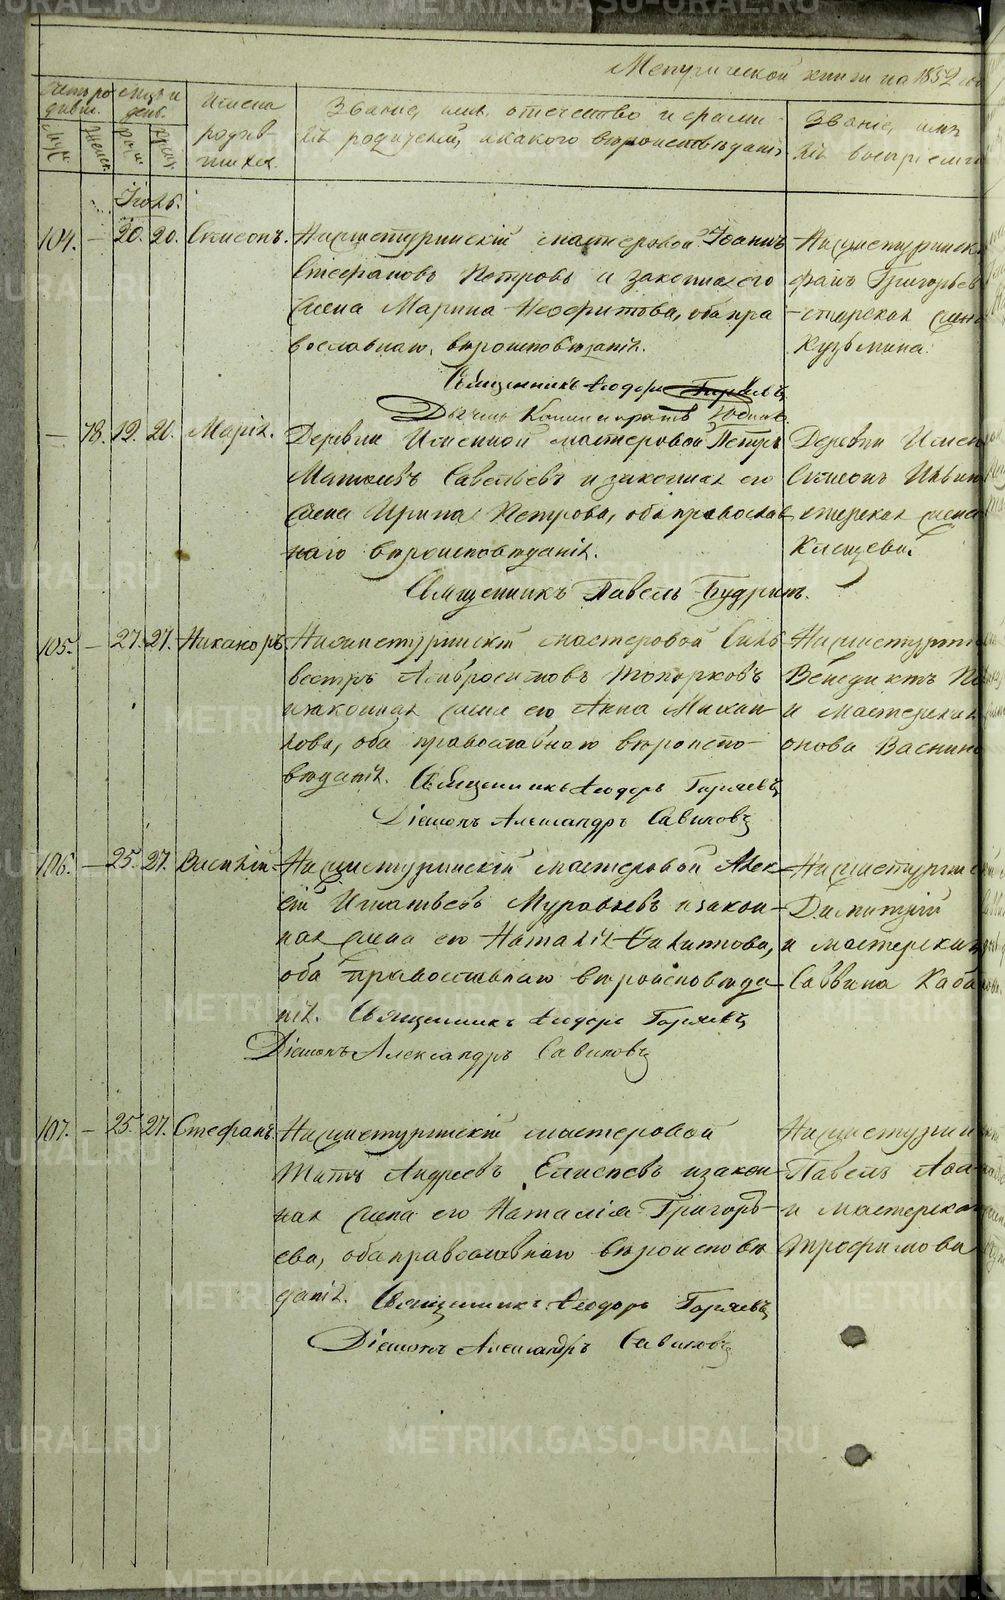 METRIKI.GASO-URAL.RU
Метрической книги на 1852
Счетъ ро
дивш.
Муж.
Женск.
Мѣц. и
день.
Имена
родив
шихся
Званіе, имя, отечество и фами-
лія родителей, и какого вѣроисповѣданія
Званіе, имя
лія воспріемн
Іюль.
104. – 20. 20. Симеонъ.
Нижнетуринскій мастеровой Іоаннъ
Стефановъ Петровъ и законная его
жена Марина Неофитова, оба пра
вославнаго вѣроисповѣданія.
Священникъ Ѳеодоръ
Нижнетуринск
фанъ Григорьев
стерская жена
Кузьмина.
– 78. 19. 21. Марія.
Деревни Именной мастеровой Петръ
Матѳеевъ Савельевъ и законная его
жена Ирина Петрова, оба православ
наго вѣроисповѣданія.
Священникъ Павелъ Будринъ.
Деревни Имен
Симеонъ
стерская жена
Клещева
105. – 27. 27. Никаноръ
Нижнетуринскій мастеровой Силь
вестръ Амвросимовъ Топорковъ
и законная жена его Анна Михаи
лова, оба православнаго вѣроиспо-
вѣданія. Священникъ Ѳеодоръ Горяевъ
Діаконъ Александръ Савиновъ
Нижнетурин
Венедиктъ
и мастерская
онова Васнин
106. – 25. 27. Василій.
Нижнетуринскій мастеровой Алек
сѣй Игнатьевъ Муравьевъ и закон-
ная жена его Наталія Никитова,
оба православнаго вѣроисповѣда
нія. Священникъ Ѳеодоръ Горяевъ
Діаконъ Александръ Савиновъ
Нижнетурин
Димитрій
и мастерская
Саввина Каба
107. – 25. 27. Стефанъ.
Нижнетуринскій мастеровой
Титъ Андреевъ Елисѣевъ и закон
ная жена его Наталія Григорь-
ева, оба православнаго вѣроисповѣ
данія. Священникъ Ѳеодоръ Горяевъ
Діаконъ Александръ Савиновъ
Нижнетурин
Павелъ
и мастерская
Трофимова